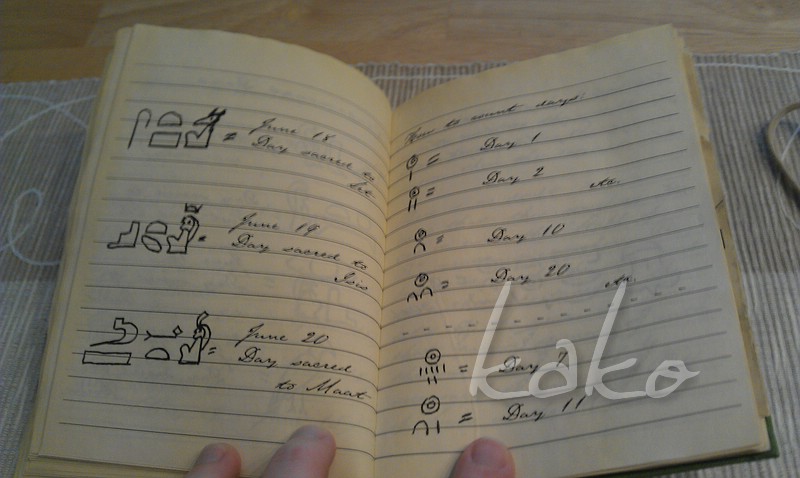 = June 18
Day sacred to
Set
= June 19
Day sacred to
Isis
= June 20
Day sacred
to Maat
How to count days:
= Day 1
= Day 2
etc.
= Day 10
= Day 20
etc.
= Day 7
= Day 11
kako